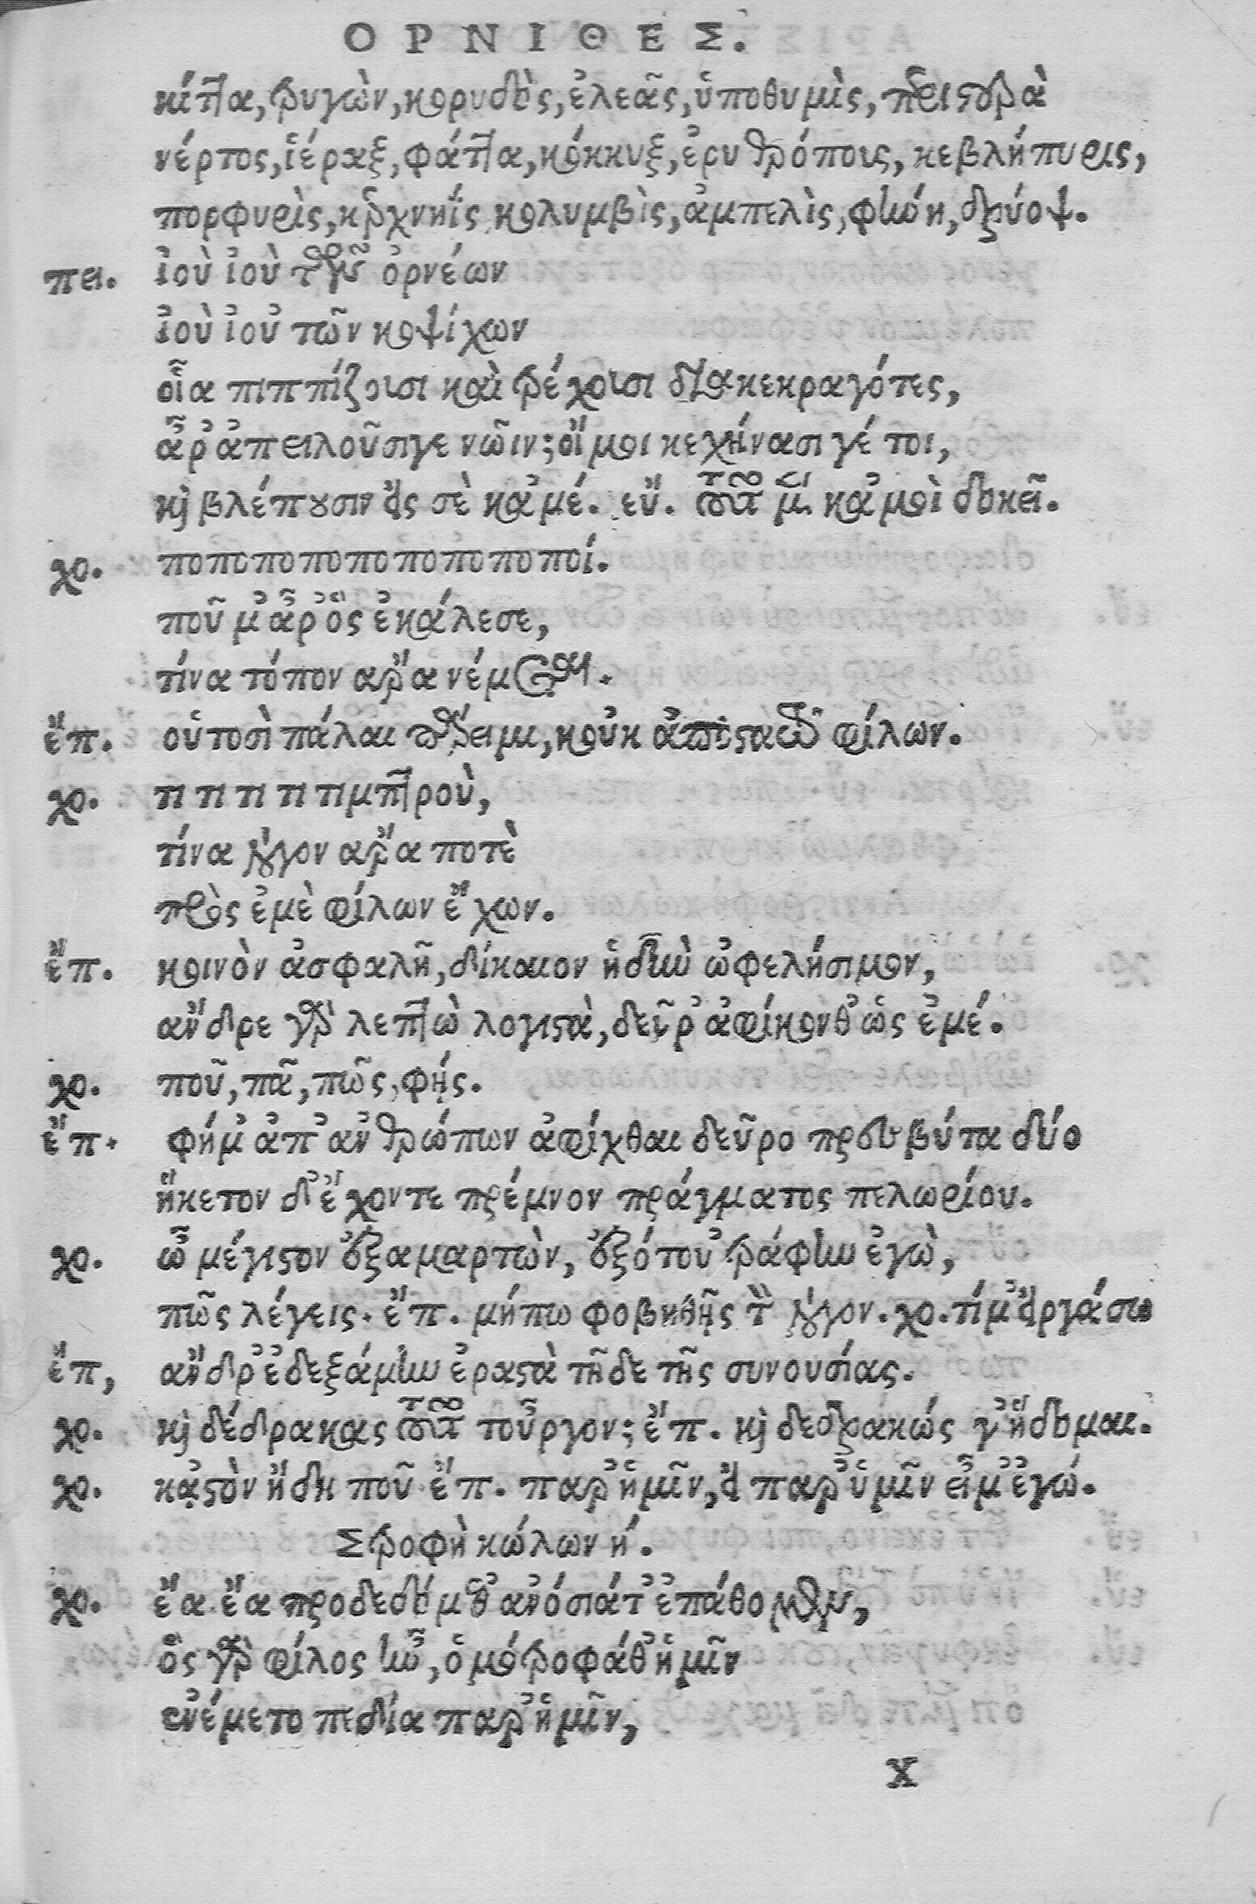 ΟΡΝΙΘΕΣ.
κίττα, τρυγὼν, κορυδὸς, ἐλεᾶς, ὑποθυμὶς, περιστερὰ
νέρτος, ἱέραξ, φάττα, κόκκυξ, ἐρυθρόπους, κεβλήπυρις,
πορφυρὶς, κερχνηῒς κολυμβὶς, ἀμπελὶς, φήνη, δρύοψ.
πει. ἰοὺ ἰοὺ τῶν ὀρνέων
ἰοὺ ἰοὺ τῶν κοψίχων
οἷα πιππίζουσι καὶ τρέχουσι διακεκραγότες,
ἆρ' ἀπειλοῦσιγε νῶιν; οἴμοι κεχήνασι γέ τοι,
καὶ βλέπουσιν εἰς σὲ κἀμέ. εὔ. τοῦτο μὲν κἀμοὶ δοκεῖ.
χο. ποποποποποποποποποί.
ποῦ μ' ἆρ' ὃς ἐκάλεσε,
τίνα τόπον ἄρα νέμεται.
ἔπ. οὑτοσὶ πάλαι πάρειμι, κοὐκ ἀποστατῶ φίλων.
χο. τι τι τι τι τιμπτροὺ,
τίνα λόγον ἄρα ποτὲ
πρὸς ἐμὲ φίλων ἔχων.
ἔπ. κοινὸν ἀσφαλῆ, δίκαιον ἡδὺν ὠφελήσιμον,
ἄνδρε γὰρ λεπτὼ λογιστὰ, δεῦρ' ἀφίκονθ' ὡς ἐμέ.
χο. ποῦ, πᾶ, πῶς, φής.
ἔπ. φήμ' ἀπ' ἀνθρώπων ἀφίχθαι δεῦρο πρεσβύτα δύο
ἥκετον δ' ἔχοντε πρέμνον πράγματος πελωρίου.
χο. ὦ μέγιστον ἐξαμαρτὼν, ἐξότου 'τράφην ἐγὼ,
πῶς λέγεις. ἔπ. μήπω φοβηθῇς τὸν λόγον. χο. τί μ' εἰργάσω
ἔπ, ἄνδρ' ἐδεξάμην ἐραστὰ τῆδε τῆς συνουσίας.
χο. καὶ δέδρακας τοῦτο τοὖργον; ἔπ. καὶ δεδρακώς γ' ἥδομαι.
χο. κἀστὸν ἤδη ποῦ ἔπ. παρ' ἡμῖν, εἰ παρ' ὑμῖν εἶμ' ἐγώ.
Στροφὴ κώλων ή.
χο. ἔα ἔα προδεδόμεθ' ἀνόσιάτ' ἐπάθομεν,
ὃς γὰρ φίλος ἦν, ὁμότροφάθ' ἡμῖν
ἐνέμετο πεδία παρ' ἡμῖν,
Χ